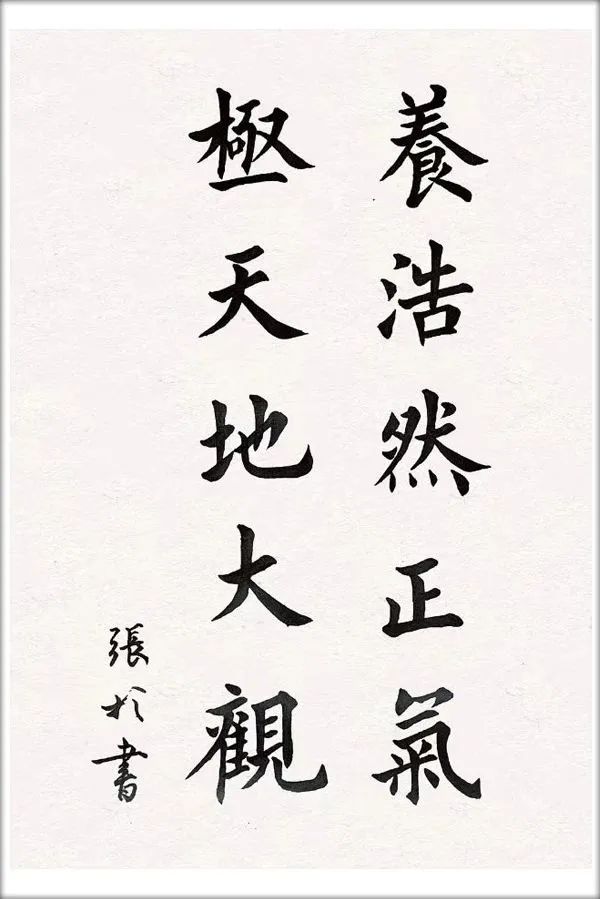 養浩然正氣
極天地大觀
張書